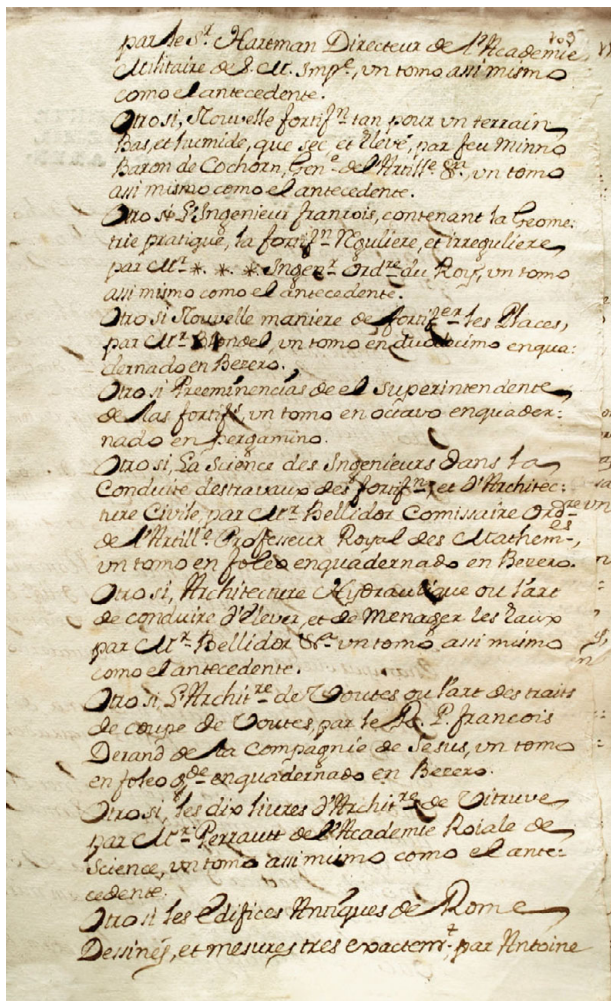 703
par le Sr. Hartman Directeur de l'Academie
Militaire de S. M. Impe., vn tomo assi mismo
como el antecedente.
Otro si, Nouvelle fortifn. tan pour vn terrain
Bas, et humide, que sec, et Elévé, par feu Minno
Baron de Cochorn, Genl. de l'Artille. &a., vn tomo
assi mismo como el antecedente.
Otro si L'Ingenieur francois, contenant la Geome:
trie pratique, la fortifn. Reguliere, et irreguliere
par Mr. *. *. * Ingenr. Ordre. du Roy, vn tomo
assi mismo como el antecedente.
Otro si Nouvelle maniere de fortifier les Places,
par Mr. Blondel, vn tomo en duodecimo enqua:
dernado en Bezero.
Otro si Preeminencias de el Superintendente
de las fortifs., vn tomo en octavo enquader:
nado en pergamino.
Otro si, La Science des Ingenieurs dans la
Conduite destravaux des fortifns. et d'Architec:
ture Civile, par Mr. Bellidor Comissaire Ordre.
de l'Artille. Professeur Royal des Mathemes.,
vn tomo en foleo enquadernado en Bezero.
Otro si, Architecture Hydraulique ou l'art
de conduire d'Elever, et de Menager les Eaux
par Mr. Bellidor &a. vn tomo, assi mismo
como el antecedente.
Otro si, L'Archit.re de Voutes ou l'art des traits
de coupe de Voutes, par le R. P. francois
Derand de la Compagnie de Jesus, vn tomo
en foleo gde. enquadernado en Bezero.
Otro si, les dix livres d'Archit.re de Vitruve
par Mr. Perrault de l'Academie Roiale de
Science, vn tomo assi mismo como el ante:
cedente.
Otro si les Edifices Antiques de Rome
Dessinés, et mesures tres exactemt., par Antoine